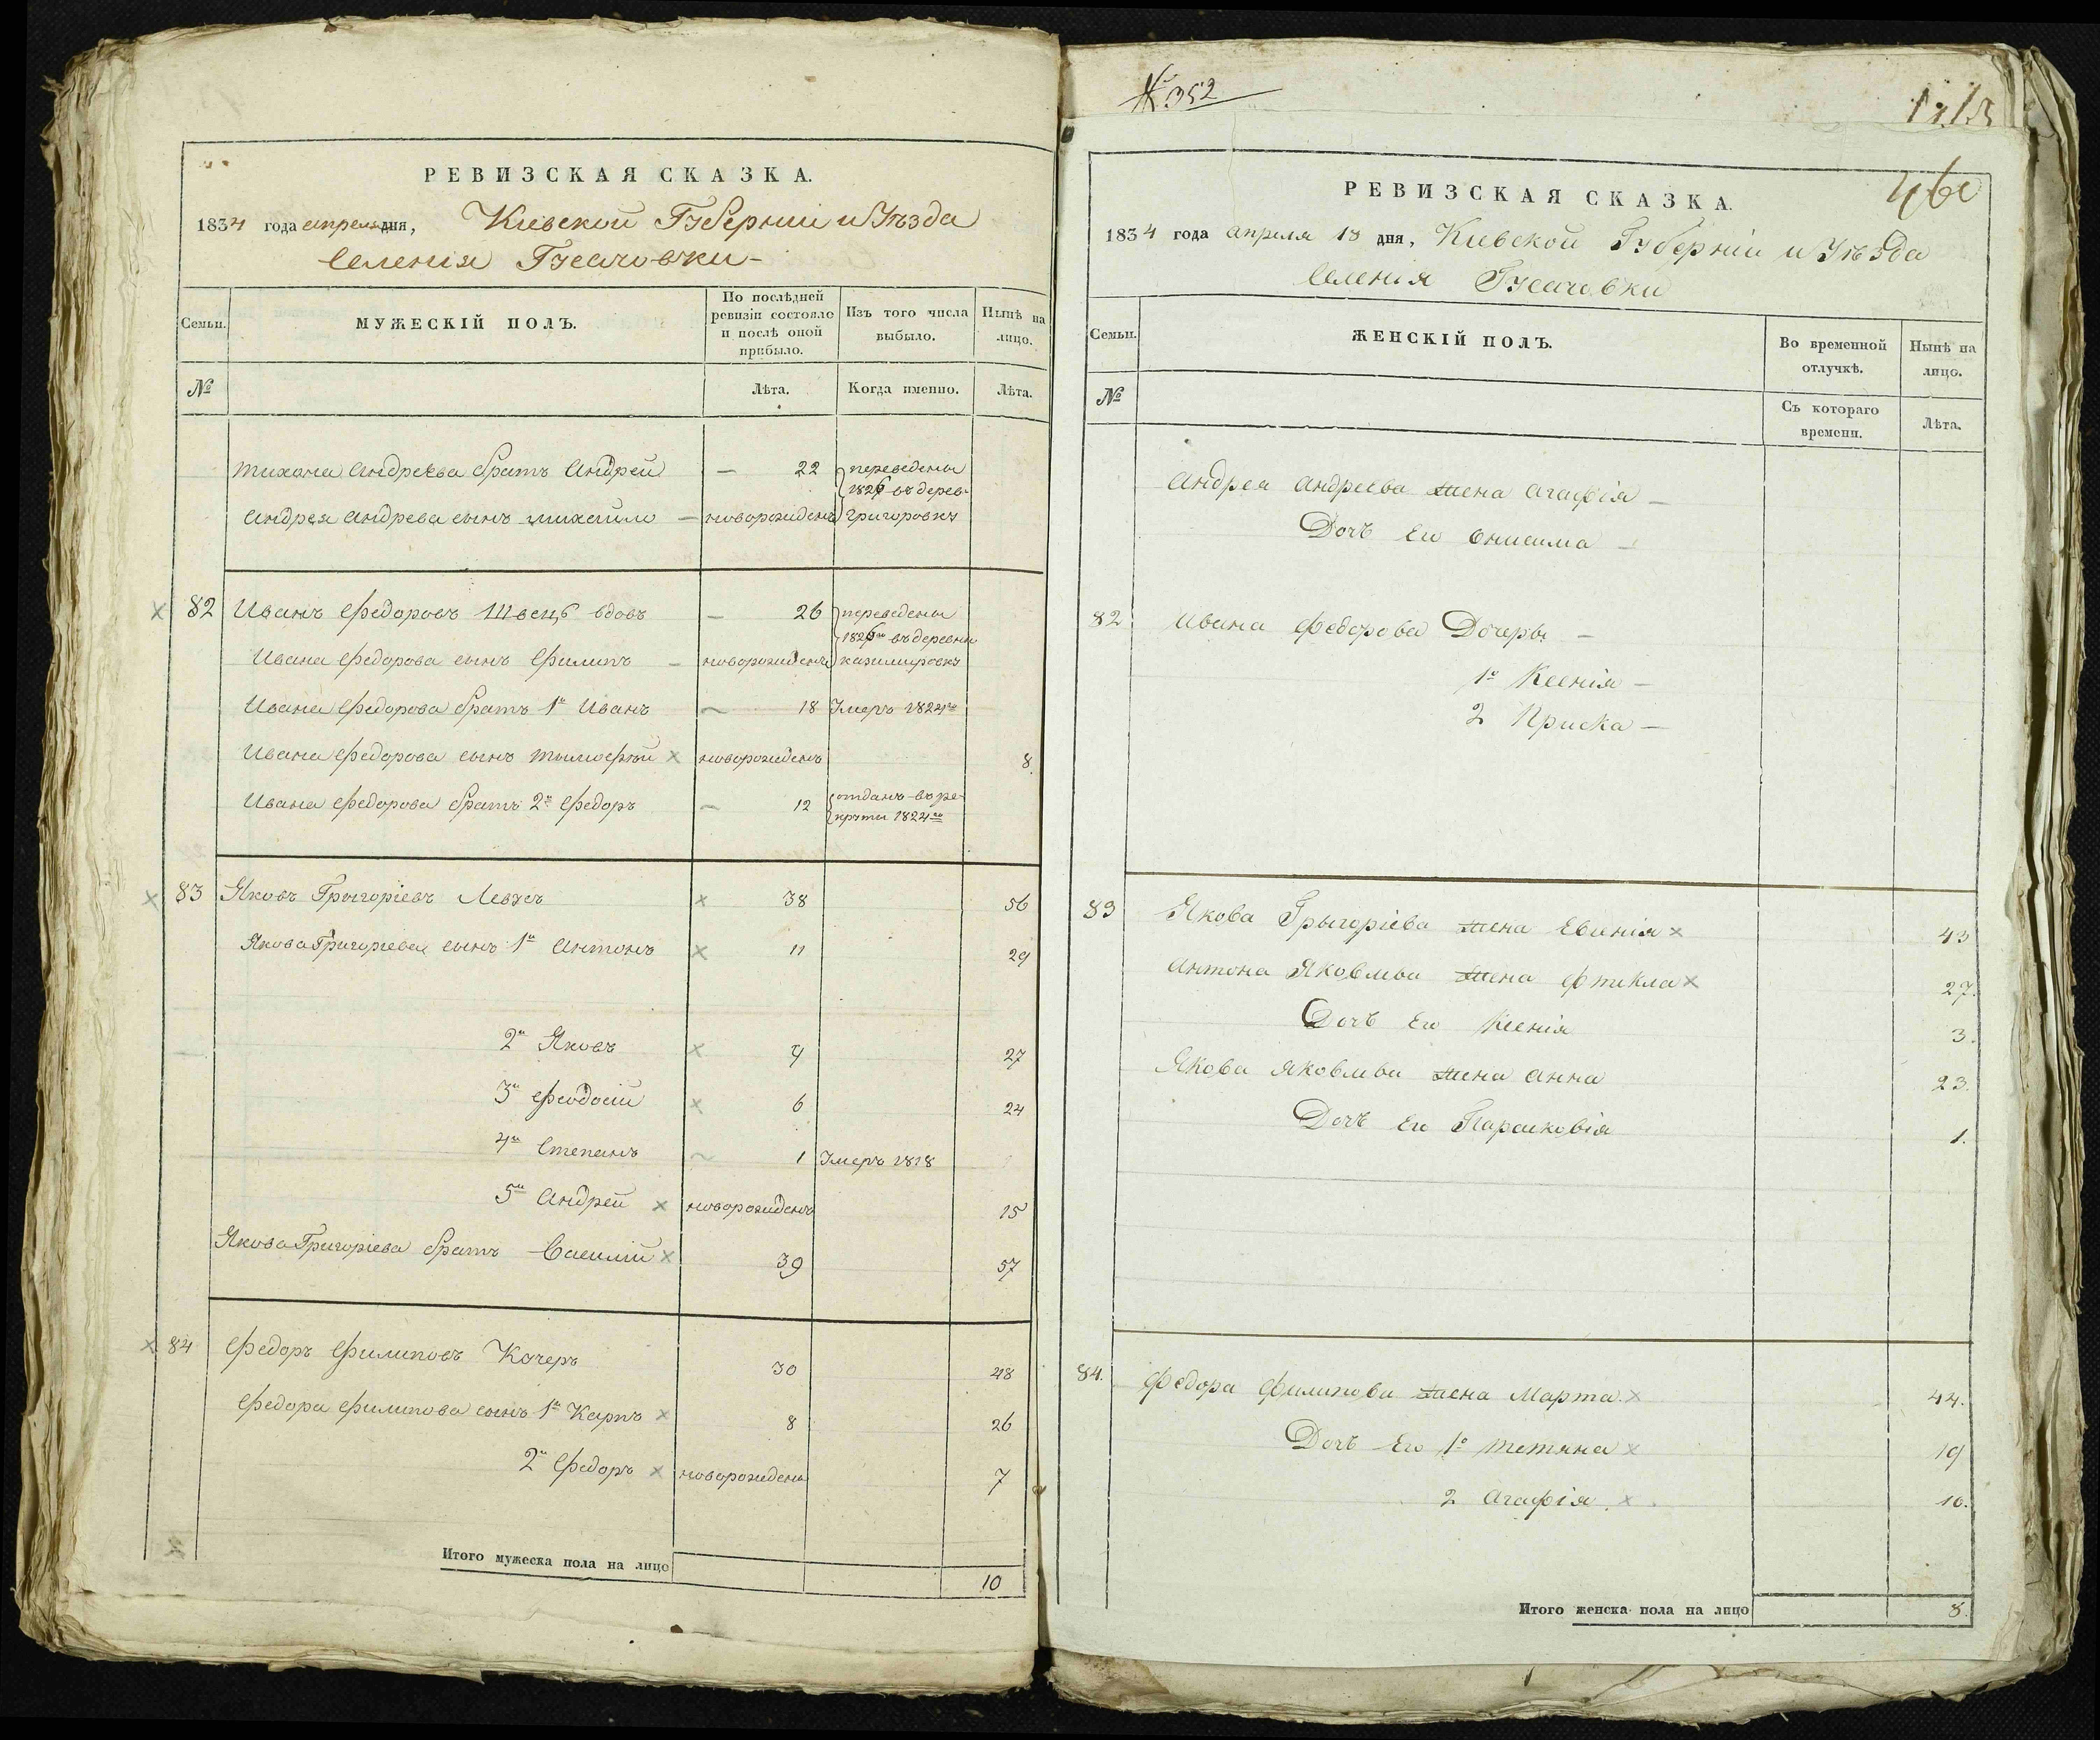 РЕВИЗСКАЯ СКАЗКА.
1834 года апреля дня, Кіевской Губерніи и Уѣзда
Селенія Гусачовки
Семьи.
МУЖЕСКІЙ ПОЛЪ.
По послѣдней ревизіи состояло и послѣ оной прибыло.
Изъ того числа выбыло.
Нынѣ на лицо.
№
Лѣта.
Когда именно.
Лѣта.
Тихона Андреева братъ Андрей — 22 переведены
1826 въ дерев.
Андрея Андрева сынъ Михаило — новорожденъ Григоровку
82 Иванъ Федоровъ Швецъ вдовъ — 26 переведены
1826го въ деревню
Ивана Федорова сынъ Филипъ — новорожденъ казимировку
Ивана Федорова братъ 1й Иванъ 18 Умеръ 1824го
Ивана Федорова сынъ Тимофѣй новорожденъ 8.
Ивана Федорова братъ 2й Федоръ 12 отданъ въ ре-
круты 1824го
83 Яковъ Грыгоріевъ 38 56
Якова Григоріева сынъ 1й Антонъ 11 29
2й Яковъ 9 27
3й Феодосій 6 24
4й Степанъ 1 Умеръ 1818
5й Андрей новорожденъ 15
Якова Григоріева братъ Василій 39 57
84 Федоръ Филиповъ Качеръ 30 48
Федора Филипова сынъ 1й Карпъ 8 26
2й Федоръ новорожденъ 7
Итого мужеска пола на лицо 10
№ 352
РЕВИЗСКАЯ СКАЗКА.
1834 года апреля 18 дня, Кіевской Губерніи и Уѣзда
Селенія Гусачовки
Семьи.
ЖЕНСКІЙ ПОЛЪ.
Во временной отлучкѣ.
Нынѣ на лицо.
№
Съ котораго времени.
Лѣта.
Андрея Андреева жена Агафія —
Дочъ Его Онисима —
82 Ивана Федорова Дочеры —
1я Ксенія —
2 Приска —
83 Якова Грыгоріева жена Евгенія 43
Антона Яковлева жена Фтекла 27.
Дочъ Его Ксенія 3.
Якова Яковлева жена Анна 23.
Дочъ Его Парасковія 1.
84. Федора Филипова жена Марта. 44.
Дочъ Его 1я Тетяна 19
2 Агафія. 10.
Итого женска пола на лицо 8.